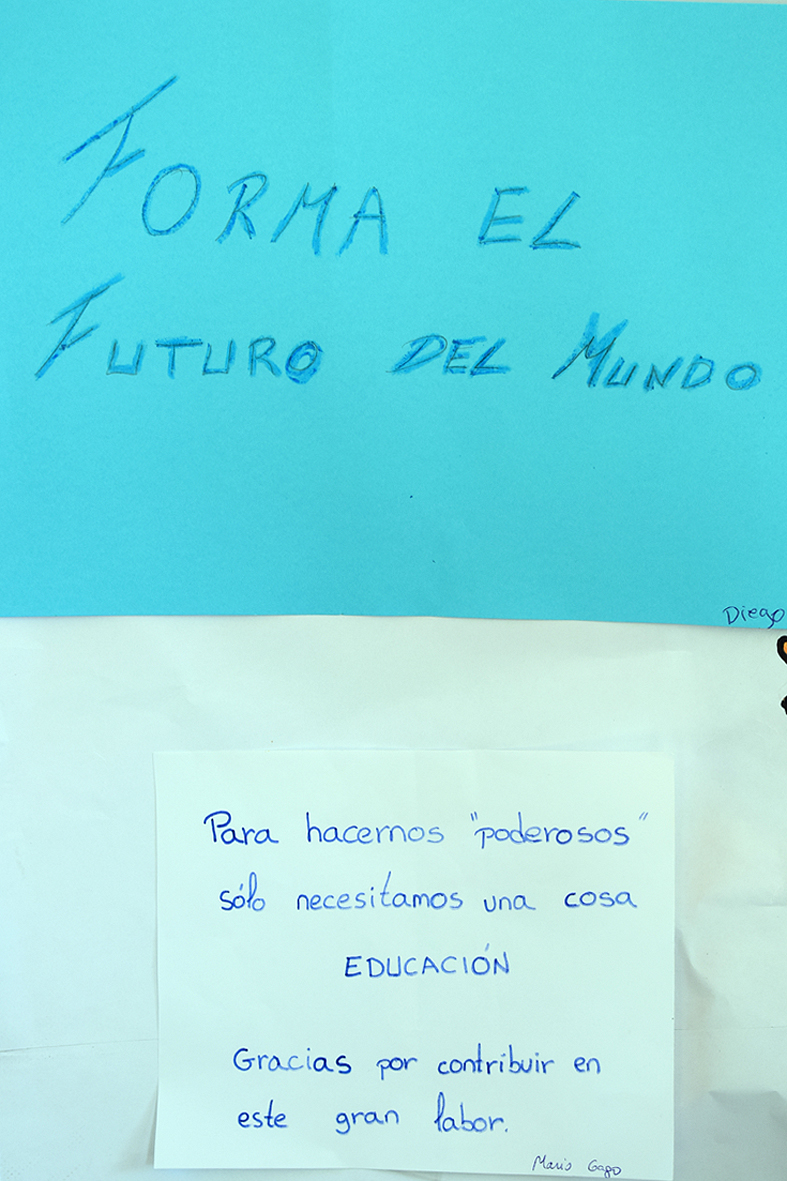 FORMA EL
FUTURO DEL MUNDO
Diego
Para hacernos "poderosos"
sólo necesitamos una cosa
EDUCACIÓN
Gracias por contribuir en
este gran labor.
Gago